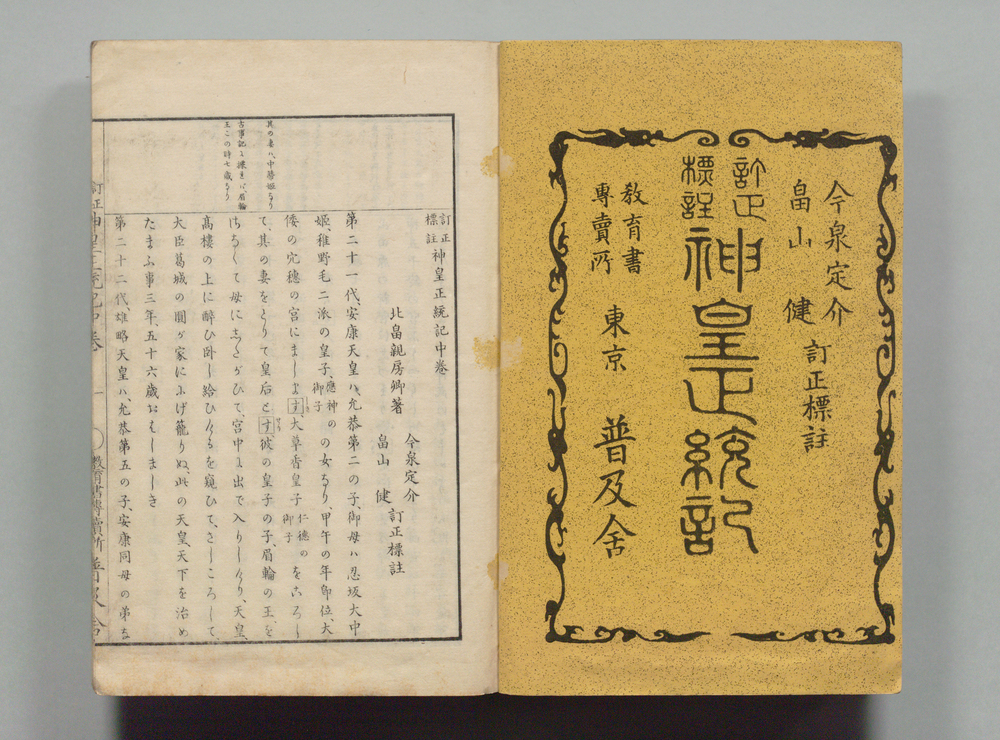 今泉定介
畠山　健
訂正標註
訂正
標註
神皇正統記
教育書
專賣所
東京　普及舍
其の妻ハ、中蒂姫なり
古事記に據れバ、眉輪
王この時七歳なり
訂正
標註
神皇正統記中卷
北畠親房卿著
今泉定介
畠山　健
訂正標註
第二十一代、安康天皇ハ、允恭第二の子、御母ハ忍坂大中
姫、稚野毛二派の皇子、應神の御子の女なり、甲午の年卽位、大
倭の穴穗の宮にまします、大草香皇子仁德の御子をころし
て、其の妻をとりて皇后とす、彼の皇子の子、眉輪の王、を
さなくて母にしたがひて、宮中に出で入りしけり、天皇、
高樓の上に醉ひ臥し給ひけるを窺ひて、さしころして、
大臣葛城の圓が家ににげ籠りぬ、此の天皇天下を治め
たまふ事三年、五十六歳おはしましき
第二十二代、雄略天皇ハ、允恭第五の子、安康同母の弟な